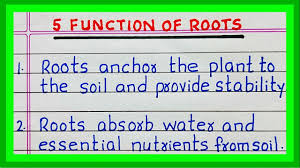 5 FUNCTION OF ROOTS
1. Roots anchor the plant to
the soil and provide stability
2. Roots absorb water and
essential nutrients from soil.